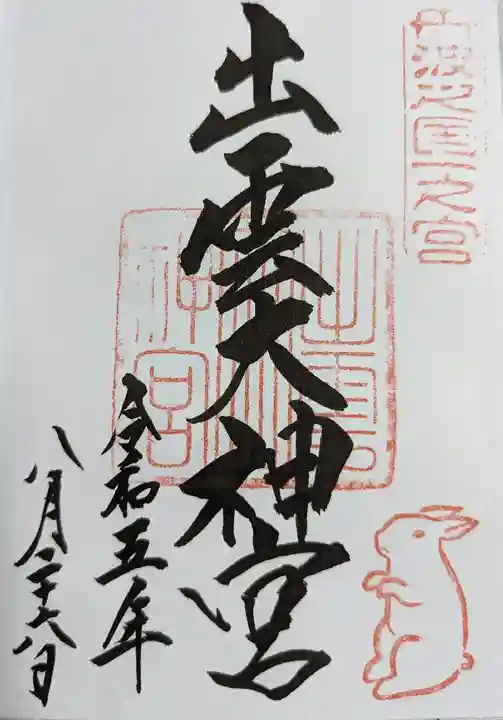 丹波國一之宮
出雲大神宮
出雲大神宮
令和五年
八月二十六日